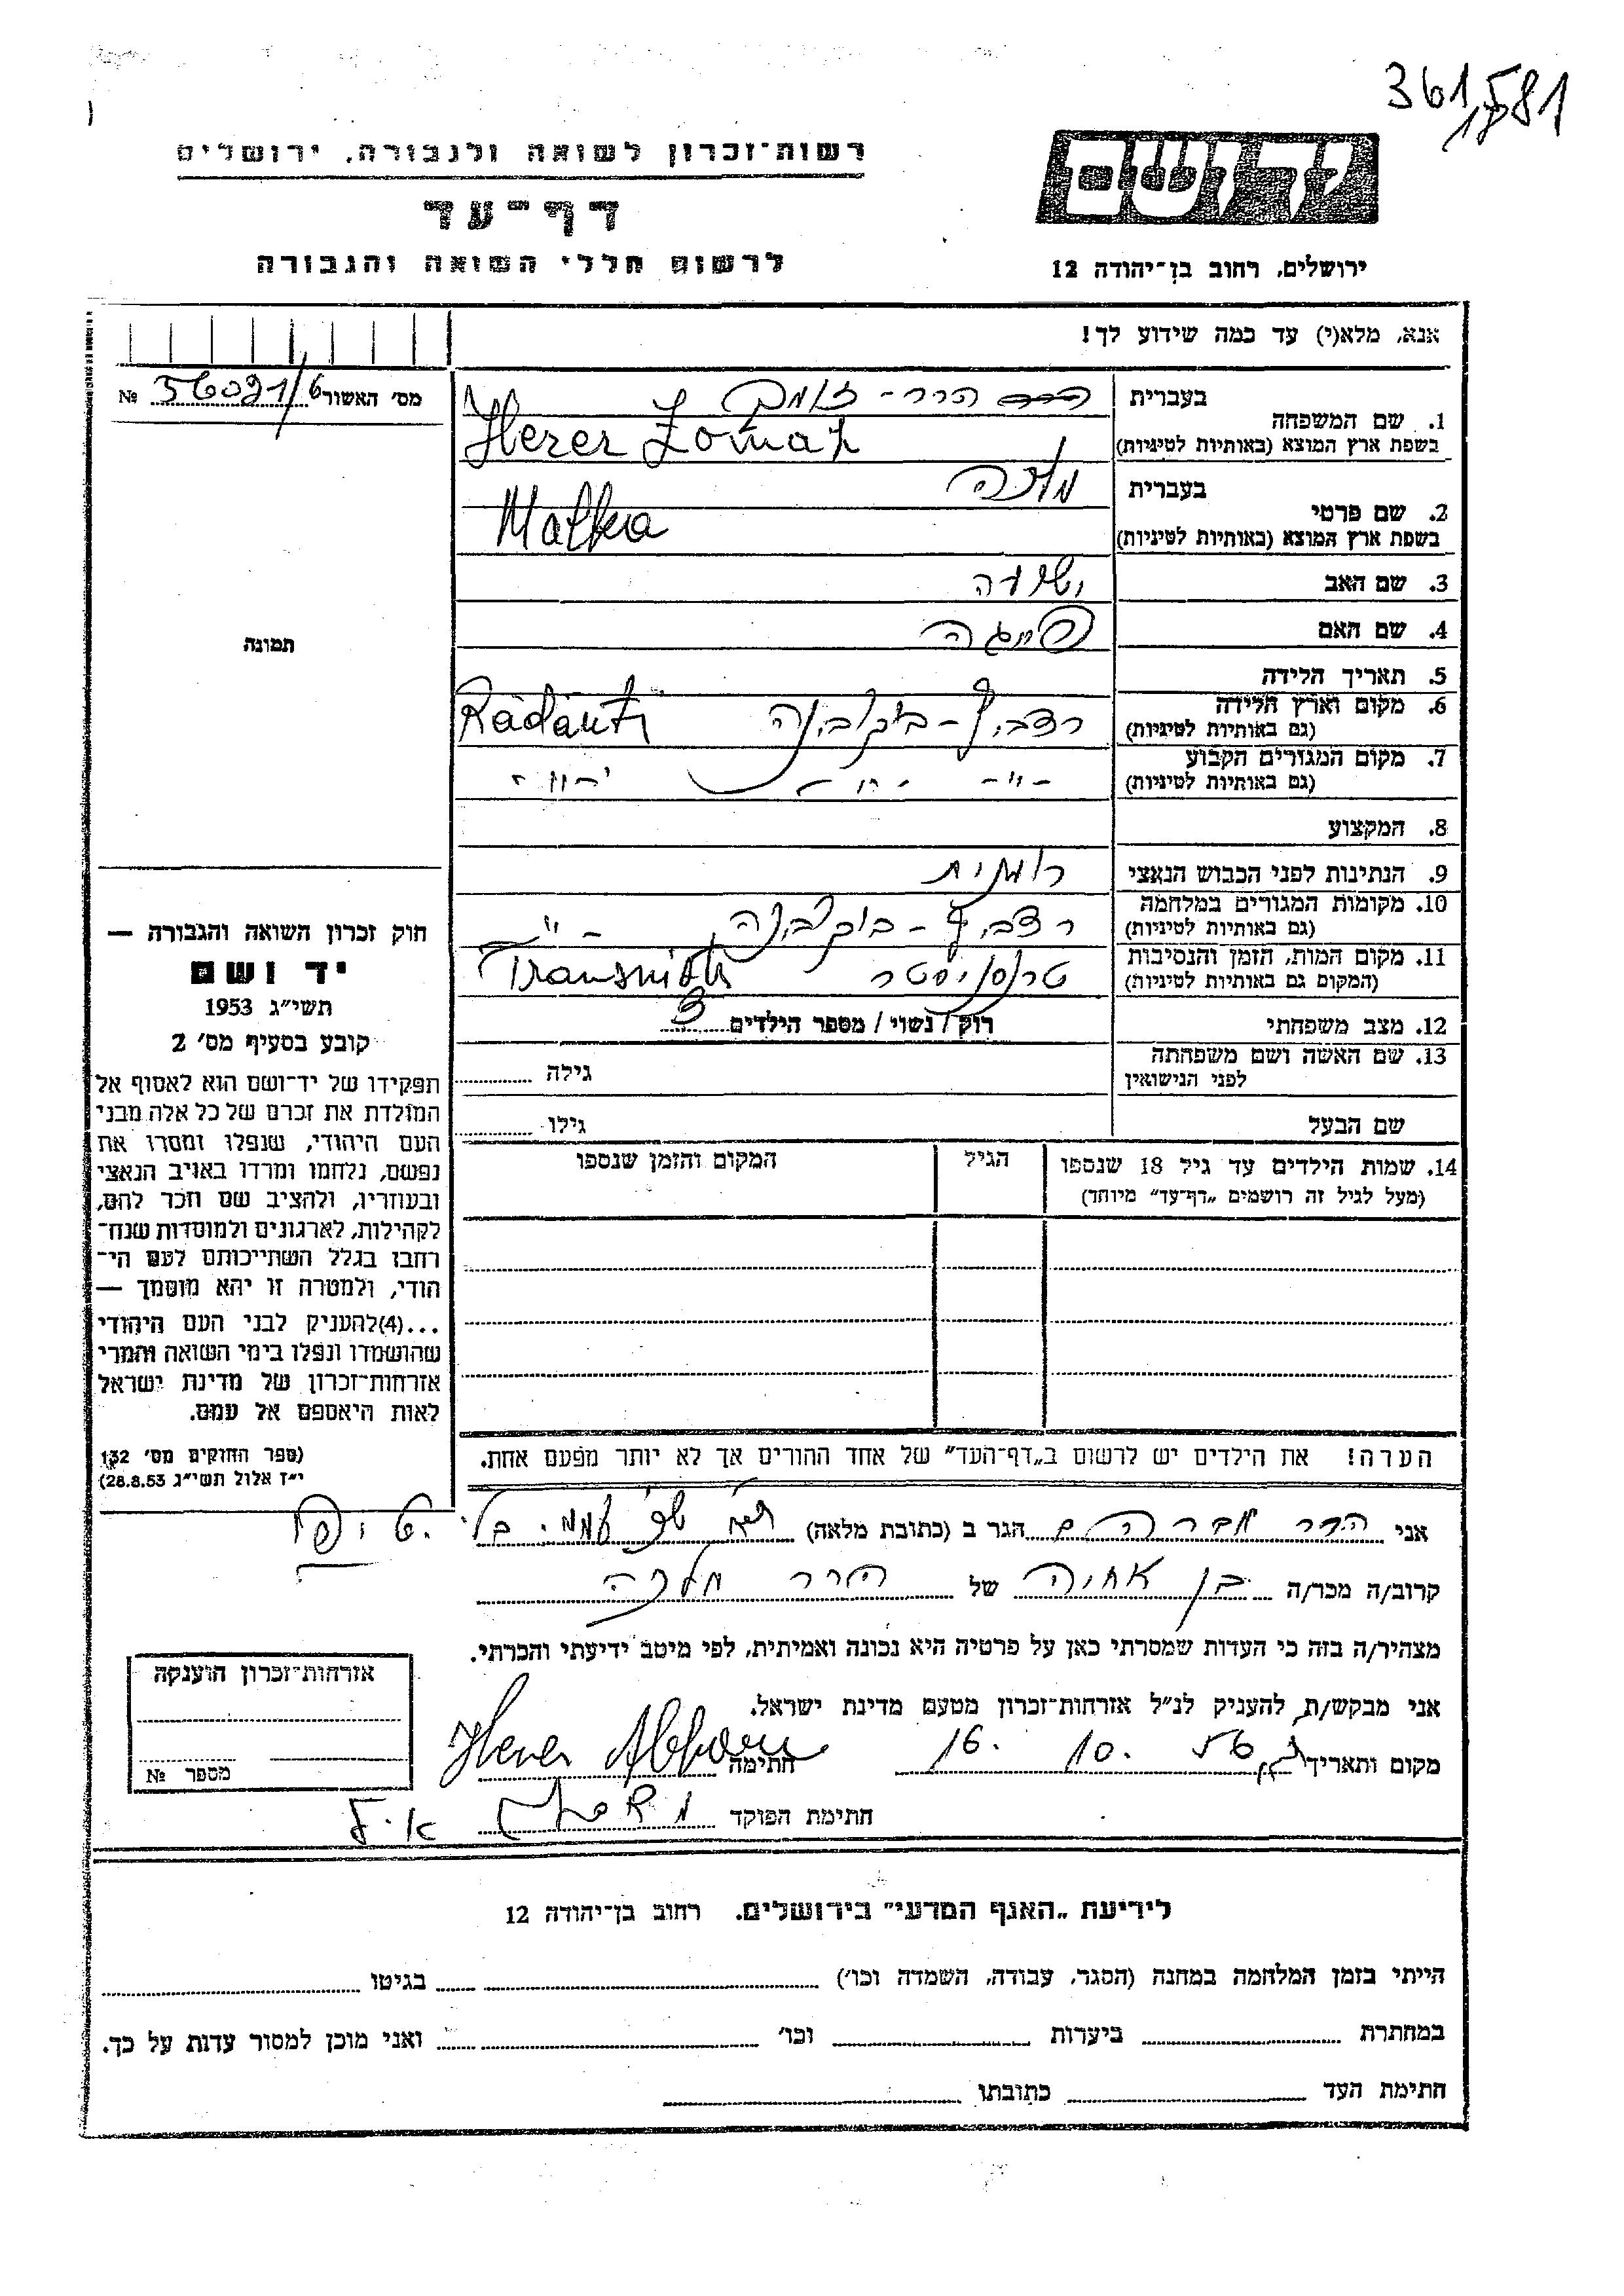 361,581
רשות־זכרון לשואה ולגבורה, ירושלים
יד ושם
דף־עד
לרשום חללי השואה והגבורה
ירושלים, רחוב בן־יהודה 12
אנא, מלא(י) עד כמה שידוע לך!
מס' האשור 56021/6 №
1. שם המשפחה
בעברית הרר-
בשפת ארץ המוצא (באותיות לטיניות) Herer
2. שם פרטי
בעברית מלכה
בשפת ארץ המוצא (באותיות לטיניות) Malka
תמונה
3. שם האב
4. שם האם
5. תאריך הלידה
6. מקום וארץ הלידה
(גם באותיות לטיניות) בוקובינה Rădăuti
7. מקום המגורים הקבוע
(גם באותיות לטיניות) -"- -"- -"-
8. המקצוע
9. הנתינות לפני הכבוש הנאצי רומנית
10. מקומות המגורים במלחמה
(גם באותיות לטיניות) בוקובינה -"
11. מקום המות, הזמן והנסיבות
(המקום גם באותיות לטיניות) טרנסניסטר
12. מצב משפחתי רוק / נשוי / מספר הילדים 3
13. שם האשה ושם משפחתה
לפני הנישואין
גילה
שם הבעל
גילו
14. שמות הילדים עד גיל 18 שנספו
(מעל לגיל זה רושמים „דף־עד” מיוחד)
הגיל
המקום והזמן שנספו
חוק זכרון השואה והגבורה —
יד ושם
תשי״ג 1953
קובע בסעיף מס' 2
תפקידו של יד־ושם הוא לאסוף אל
המולדת את זכרם של כל אלה מבני
העם היהודי, שנפלו ומסרו את
נפשם, נלחמו ומרדו באויב הנאצי
ובעוזריו, ולהציב שם וזכר להם,
לקהילות, לארגונים ולמוסדות שנח־
רבו בגלל השתייכותם לעם הי־
הודי, ולמטרה זו יהא מוסמך —
...(4) להעניק לבני העם היהודי
שהושמדו ונפלו בימי השואה והמרי
אזרחות־זכרון של מדינת ישראל
לאות היאספם אל עמם.
(ספר החוקים מס' 132
י״ז אלול תשי״ג 28.8.53)
הערה! את הילדים יש לרשום ב„דף־העד” של אחד ההורים אך לא יותר מפעם אחת.
אני הרר אברהם הגר ב (כתובת מלאה)
קרוב/ה מכר/ה בן אחיה של הרר מלכה
מצהיר/ה בזה כי העדות שמסרתי כאן על פרטיה היא נכונה ואמיתית, לפי מיטב ידיעתי והכרתי.
אני מבקש/ת להעניק לנ״ל אזרחות־זכרון מטעם מדינת ישראל.
מקום ותאריך 16. 10. 56 חתימה Herer
חתימת הפוקד
אזרחות־זכרון הוענקה
מספר №
לידיעת „האגף המדעי” בירושלים, רחוב בן־יהודה 12
הייתי בזמן המלחמה במחנה (הסגר, עבודה, השמדה וכו') בגיטו
במחתרת ביערות וכו' ואני מוכן למסור עדות על כך.
חתימת העד כתובתו